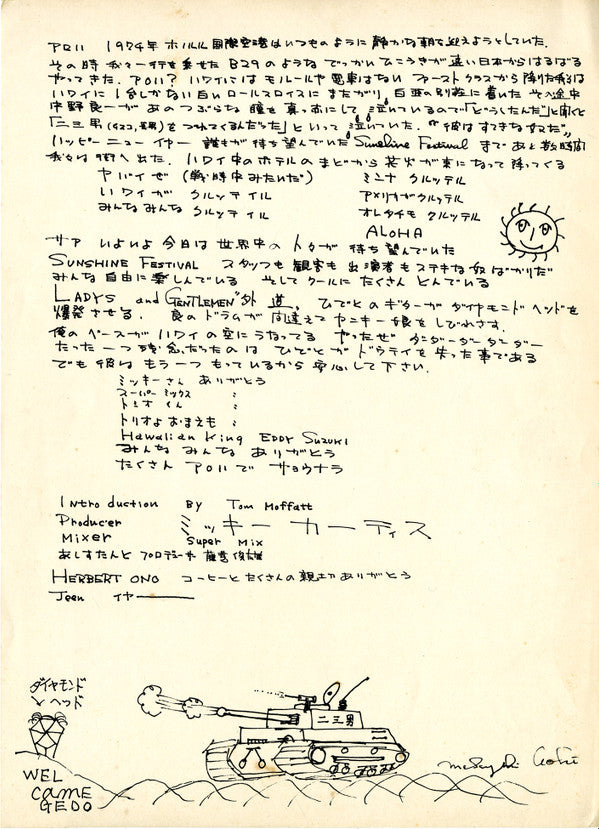 アロハ 1974年 ホノルル国際空港はいつものように静かな朝を迎えようとしていた.
その時 我々一行を乗せた B29のような でっかいひこうきが 遠い日本からはるばる
やってきた. アロハ? ハワイには モノレールや電車はない ファーストクラスから降りた我々は
ハワイに1台しかない白いロールスロイスにまたがり 白亜の別荘に着いた その途中
中野良一が あのつぶらな 瞳を真っ赤にして 泣いているので「どうしたんだ」と聞くと
「二三男 をつれてくるんだった」といって 泣いていた. “彼はすてきな女だ„
ハッピーニューイヤー 誰もが待ち望んでいた Sunshine Festival まであと数時間
我々は街へ出た. ハワイ中のホテルのまどから花火が束になって降ってくる
ヤバイゼ (戦時中みたいだ) ミンナ クルッテル
ハワイガ クルッテイル アメリカガクルッテル
みんなみんな クルッテイル オレタチモ クルッテル
ALOHA
サァ いよいよ 今日は世界中の人々が待ち望んでいた
SUNSHINE FESTIVAL スタッフも観客も出演者もステキな奴ばかりだ
みんな自由に楽しんでいる そしてクールにたくさんとんでいる
LADYS and GENTLEMEN“外道„ ひでとのギターがダイヤモンドヘッドを
爆発させる. 良のドラムが間違えてヤンキー娘をしびれさす.
俺のベースがハワイの空にうなってる やったぜ ダンダーダーダンダー
たった一つ残念だったのは ひでとがドウテイを失った事である
でも彼はもう一つもっているから安心して下さい.
ミッキーさん ありがとう
スーパーミックス 〃
トミオくん 〃
トリオよおまえも 〃
Hawaiian King EDDY SUZUKI
みんなみんな ありがとう
たくさん アロハで サヨウナラ
Introduction BY Tom Moffatt
Producer ミッキーカーティス
Mixer Super Mix
あしすたんと プロデューサー
HERBERT ONO コーヒーとたくさんの親切ありがとう
Jeen イヤー———
ダイヤモンド
ヘッド
WEL
CAME
GEDO
二三男